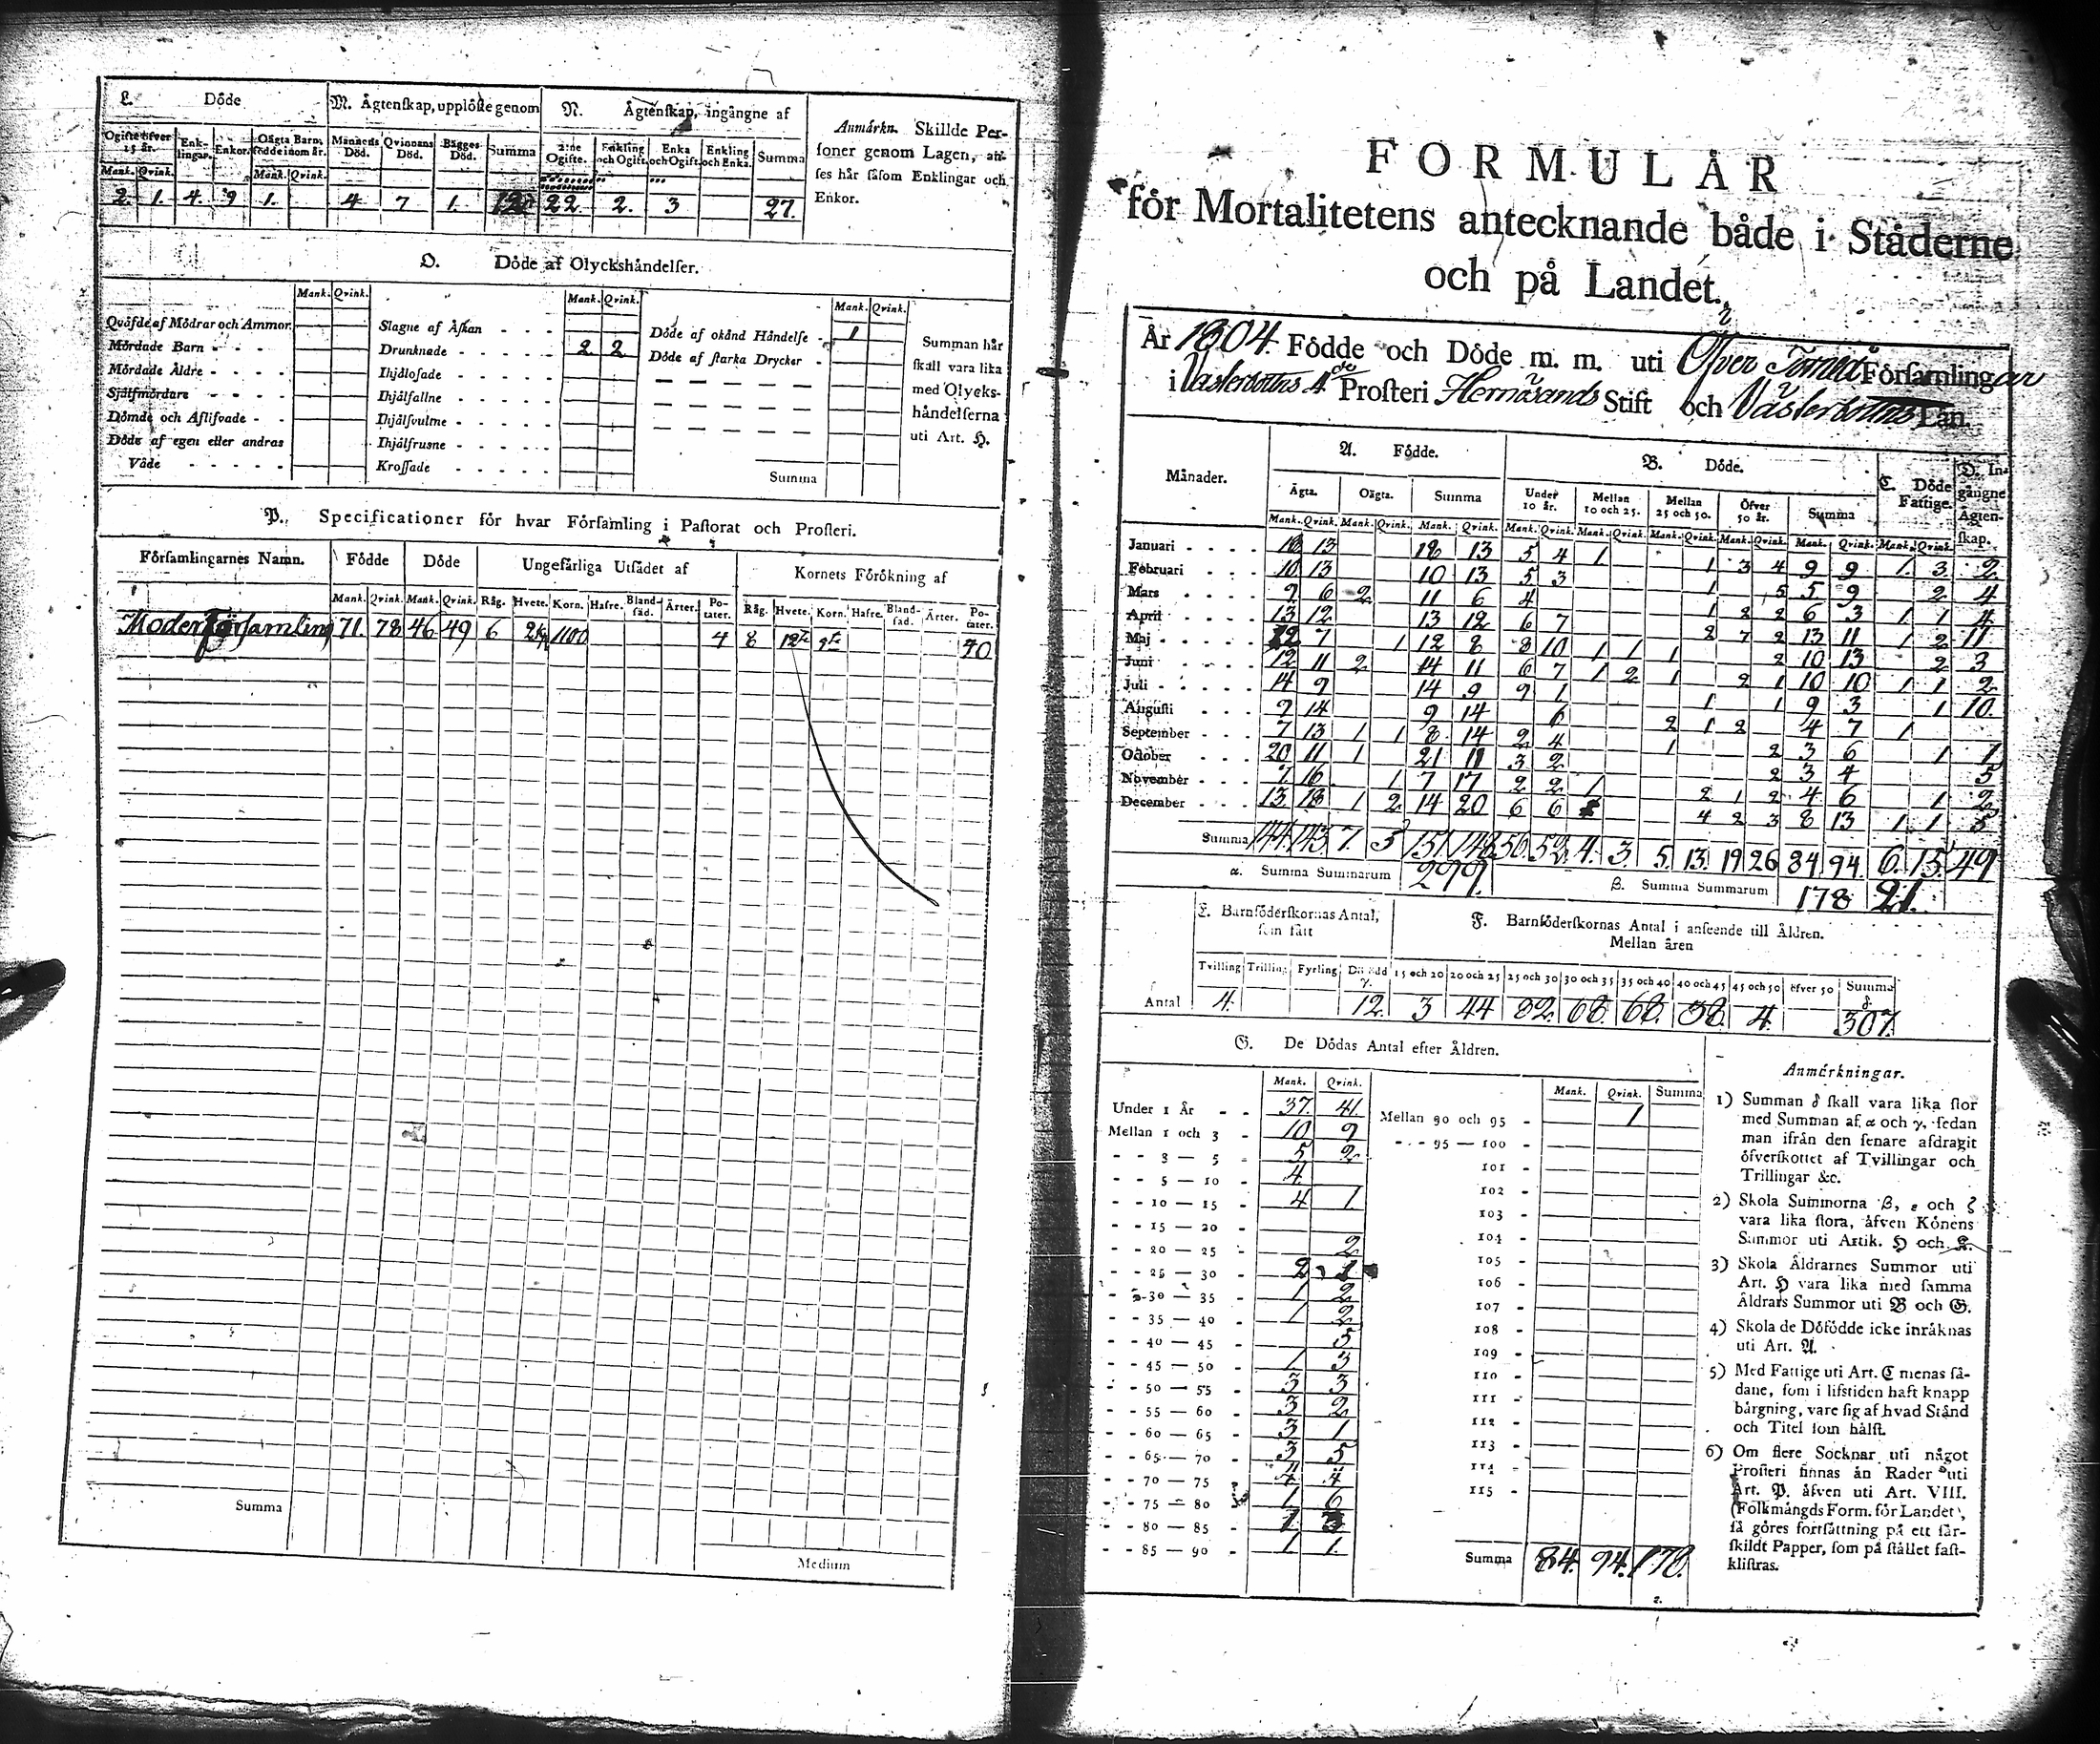 L. Döde
M. Ägtenskap, upplöste genom
N. Ägtenskap, ingångne af
Anmärkn. Skillde Personer genom Lagen, anses här såsom Enklingar och Enkor.
Ogifte öfver 15 år. Enklingar. Enkor. Oägta Barn, födde inom år. Mannens Död. Qvinnans Död. Bägges Död. Summa 2:ne Ogifte. Enkling och Ogift. Enka och Ogift. Enkling och Enka. Summa
Mank. Qvink. Mank. Qvink.
2. 1. 4. 9 1. 4 7 1. 12 22. 2. 3 27.
O. Döde af Olyckshändelser.
Mank. Qvink. Mank. Qvink. Mank. Qvink.
Qväfde af Mödrar och Ammor.
Mördade Barn
Mördade Äldre
Sjelfmördare
Dömde och Aflifvade
Döde af egen eller andras
Våde
Slagne af Åskan
Drunknade 2 2
Ihjälosade
Ihjälfallne
Ihjälsvultne
Ihjälfrusne
Krossade
Döde af okänd Händelse 1
Döde af starka Drycker
Summa
Summan här
skall vara lika
med Olycks-
händelserna
uti Art. H.
P. Specificationer för hvar Församling i Pastorat och Prosteri.
Församlingarnes Namn. Födde Döde Ungefärliga Utsädet af Kornets Förökning af
Mank. Qvink. Mank. Qvink. Råg. Hvete. Korn. Hafre. Blandsäd. Ärter. Potater. Råg. Hvete. Korn. Hafre. Blandsäd. Ärter. Potater.
Moder Församling 71. 78 46 49 6 1100 4 8 40
Summa
Medium
FORMULÄR
för Mortalitetens antecknande både i Städerne
och på Landet.
År 1804. Födde och Döde m. m. uti Öfver Torneå Församlingar
i Västerbottns 4de Prosteri Hernösands Stift och Västerbottns Län.
Månader. A. Födde. B. Döde. C. Döde Fattige. D. Ingångne Ägtenskap.
Ägta. Oägta. Summa Under 10 år. Mellan 10 och 25. Mellan 25 och 50. Öfver 50 år. Summa
Mank. Qvink. Mank. Qvink. Mank. Qvink. Mank. Qvink. Mank. Qvink. Mank. Qvink. Mank. Qvink. Mank. Qvink. Mank. Qvink.
Januari 18 13 18 13 5 4 1. 1 3 4 9 9 1. 3. 2.
Februari 10 13 10 13 5 3 1 5 5 9 2 4
Mars 9 6 2 11 6 4 1 2 2 6 3 1 1 4
April 13 12 13 12 6 7 2 7 2 13 11 1 2 11
Maj 12 7 1 12 8 8 10 1 1 1 2 10 13 2 3
Juni 12 11 2 14 11 6 7 1 2 1 2 1 10 10 1 1 2
Juli 14 9 14 9 9 1 1 1 9 3 1 10.
Augusti 9 14 9 14 6 2 1 2 4 7 1
September 7 13 1 1 8 14 2 4 1 2 3 6 1 1
October 20 11 1 21 11 3 2 2 3 4 5
November 7 16 1 7 17 2 2 1 2 1 2 4 6 1 2
December 13 18 1 2 14 20 6 6 4 2 3 8 13 1 1 5
Summa 144. 143. 7. 5 151. 148. 56. 52. 4. 3. 5. 13. 19 26 84 94. 6. 15. 49
α. Summa Summarum 299.
β. Summa Summarum 178 21.
E. Barnföderskornas Antal, som fått
F. Barnföderskornas Antal i anseende till Åldren.
Mellan åren
Tvilling Trilling Fyrling Dödfödd γ. 15 och 20 20 och 25 25 och 30 30 och 35 35 och 40 40 och 45 45 och 50 öfver 50 Summa δ
Antal 4. 12. 3 44 82. 68. 68. 38. 4. 307.
G. De Dödas Antal efter Åldren.
Mank. Qvink. Mank. Qvink. Summa
Under 1 År 37. 41.
Mellan 1 och 3 10 9
3 — 5 5 2
5 — 10 4
10 — 15 4 1.
15 — 20
20 — 25 2
25 — 30 2 1
30 — 35 1 2
35 — 40 1 2
40 — 45 5
45 — 50 1 3
50 — 55 3 3
55 — 60 3 2
60 — 65 3 1
65 — 70 3 5
70 — 75 4 4
75 — 80 1 6
80 — 85 1 3
85 — 90 1 1.
Mellan 90 och 95 1
95 — 100
101
102
103
104
105
106
107
108
109
110
111
112
113
114
115
Summa 84. 94. 178.
Anmärkningar.
1) Summan δ skall vara lika stor
med Summan af α och γ, sedan
man ifrån den senare afdragit
öfverskottet af Tvillingar och
Trillingar &c.
2) Skola Summorna β, ε och ζ
vara lika stora, äfven Könens
Summor uti Artik. H och L.
3) Skola Åldrarnes Summor uti
Art. H vara lika med samma
Åldrars Summor uti B och G.
4) Skola de Döfödde icke inräknas
uti Art. A.
5) Med Fattige uti Art. C menas så-
dane, som i lifstiden haft knapp
bärgning, vare sig af hvad Stånd
och Titel som hälst.
6) Om flere Socknar uti något
Prosteri finnas än Rader uti
Art. P. äfven uti Art. VIII.
(Folkmängds Form. för Landet),
så göres fortsättning på ett sär-
skildt Papper, som på stället fast-
klistras.